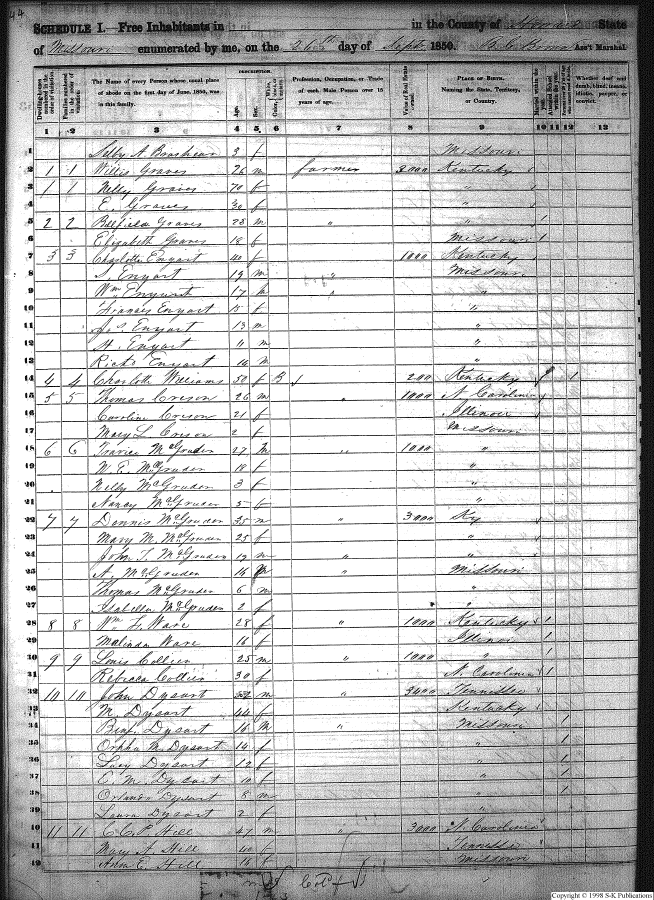 44
SCHEDULE I.—Free Inhabitants in in the County of Howard State
of Missouri enumerated by me, on the 26th day of Sept 1850. Ass't Marshal.
DESCRIPTION.
The Name of every Person whose usual place of abode on the first day of June, 1850, was in this family.
Age.
Sex.
Profession, Occupation, or Trade of each Male Person over 15 years of age.
Value of Real Estate
PLACE OF BIRTH. Naming the State, Territory, or Country.
Whether deaf and dumb, blind, insane, idiotic, pauper, or convict.
1 2 3 4 5 6 7 8 9 10 11 12 13
1 A Brashear 3 f Missouri
2 1 1 Willis Graves 76 m farmer 3000 Kentucky
3 1 1 Nelly Graves 70 f "
4 E. Graves 30 f "
5 2 2 Graves 28 m " "
6 Elizabeth Graves 18 f Missouri
7 3 3 Charlotte Enyart 40 f 1000 Kentucky
8 S. Enyart 19 m " Missouri
9 Wm Enyart 17 " "
10 Frances Enyart 15 f "
11 Enyart 13 m "
12 H. Enyart 11 m "
13 Enyart m "
14 4 4 Charlotte Williams 50 f B 200 Kentucky 1
15 5 5 Thomas Crison 26 m " 1000 N. Carolina
16 Caroline Crison 21 f Illinois
17 Mary L. Crison 2 f Missouri
18 6 6 McGruder 27 m " 1000 "
19 McGruder 18 f "
20 McGruder 3 f "
21 Nancy McGruder f "
22 7 7 Dennis McGruder 35 m " 3000 Ky
23 Mary M. McGruder 25 f "
24 John T. McGruder 19 m " "
25 A. McGruder 16 m " Missouri
26 Thomas McGruder 6 m "
27 Isabella McGruder 2 f "
28 8 8 Wm Ware 28 " 1000 Kentucky 1
29 Malinda Ware 16 f Illinois 1
30 9 9 Louis Collier 25 m " 1000 " 1
31 Rebecca Collier 30 f N. Carolina 1
32 10 10 John Dysart m " 3400 Tennessee
33 M. Dysart 44 f Kentucky
34 Benj. Dysart 16 m " Missouri 1
35 Orpha M. Dysart 14 f " 1
36 Lucy Dysart 12 f " 1
37 E. M. Dysart 10 f " 1
38 Orlando Dysart 8 m " 1
39 Laura Dysart 2 f "
40 11 11 C. C. P. Hill 47 m " 3000 N. Carolina
41 Mary A. Hill 40 f Tennessee
42 Ann E. Hill 16 f Missouri
Copyright © 1998 S-K Publications